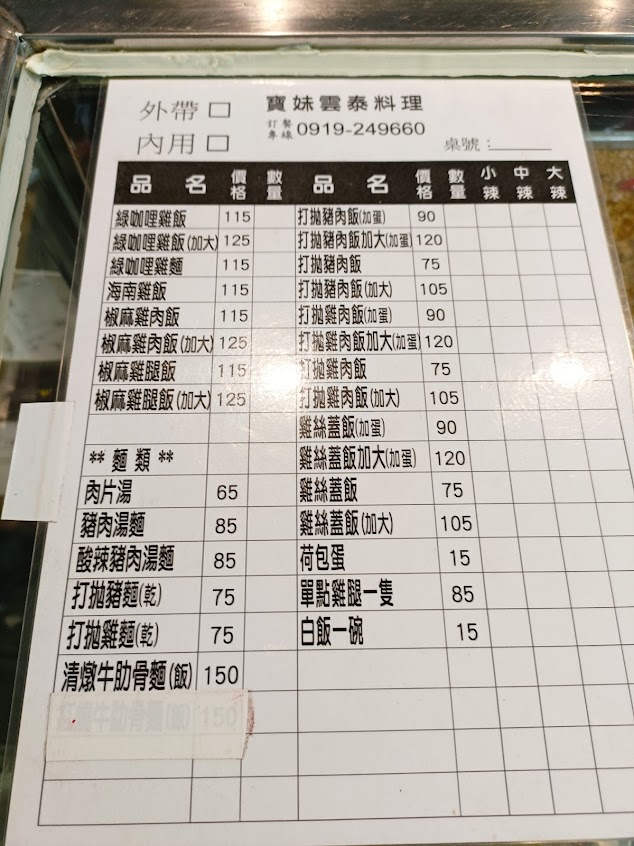 外帶 □ 寶妹雲泰料理
內用 □ 訂餐專線 0919-249660 桌號：
品名 價格 數量 品名 價格 數量 小辣 中辣 大辣
綠咖哩雞飯 115 打拋豬肉飯(加蛋) 90
綠咖哩雞飯(加大) 125 打拋豬肉飯加大(加蛋) 120
綠咖哩雞麵 115 打拋豬肉飯 75
海南雞飯 115 打拋豬肉飯(加大) 105
椒麻雞肉飯 115 打拋雞肉飯(加蛋) 90
椒麻雞肉飯(加大) 125 打拋雞肉飯加大(加蛋) 120
椒麻雞腿飯 115 打拋雞肉飯 75
椒麻雞腿飯(加大) 125 打拋雞肉飯(加大) 105
雞絲蓋飯(加蛋) 90
** 麵類 ** 雞絲蓋飯加大(加蛋) 120
肉片湯 65 雞絲蓋飯 75
豬肉湯麵 85 雞絲蓋飯(加大) 105
酸辣豬肉湯麵 85 荷包蛋 15
打拋豬麵(乾) 75 單點雞腿一隻 85
打拋雞麵(乾) 75 白飯一碗 15
清燉牛肋骨麵(飯) 150
紅燒牛肋骨麵(飯) 150